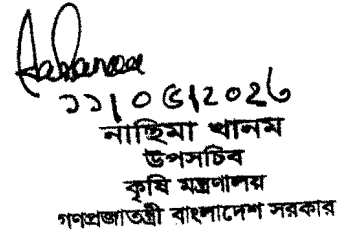 ১১|০৫|২০২৬
নাছিমা খানম
উপসচিব
কৃষি মন্ত্রণালয়
গণপ্রজাতন্ত্রী বাংলাদেশ সরকার